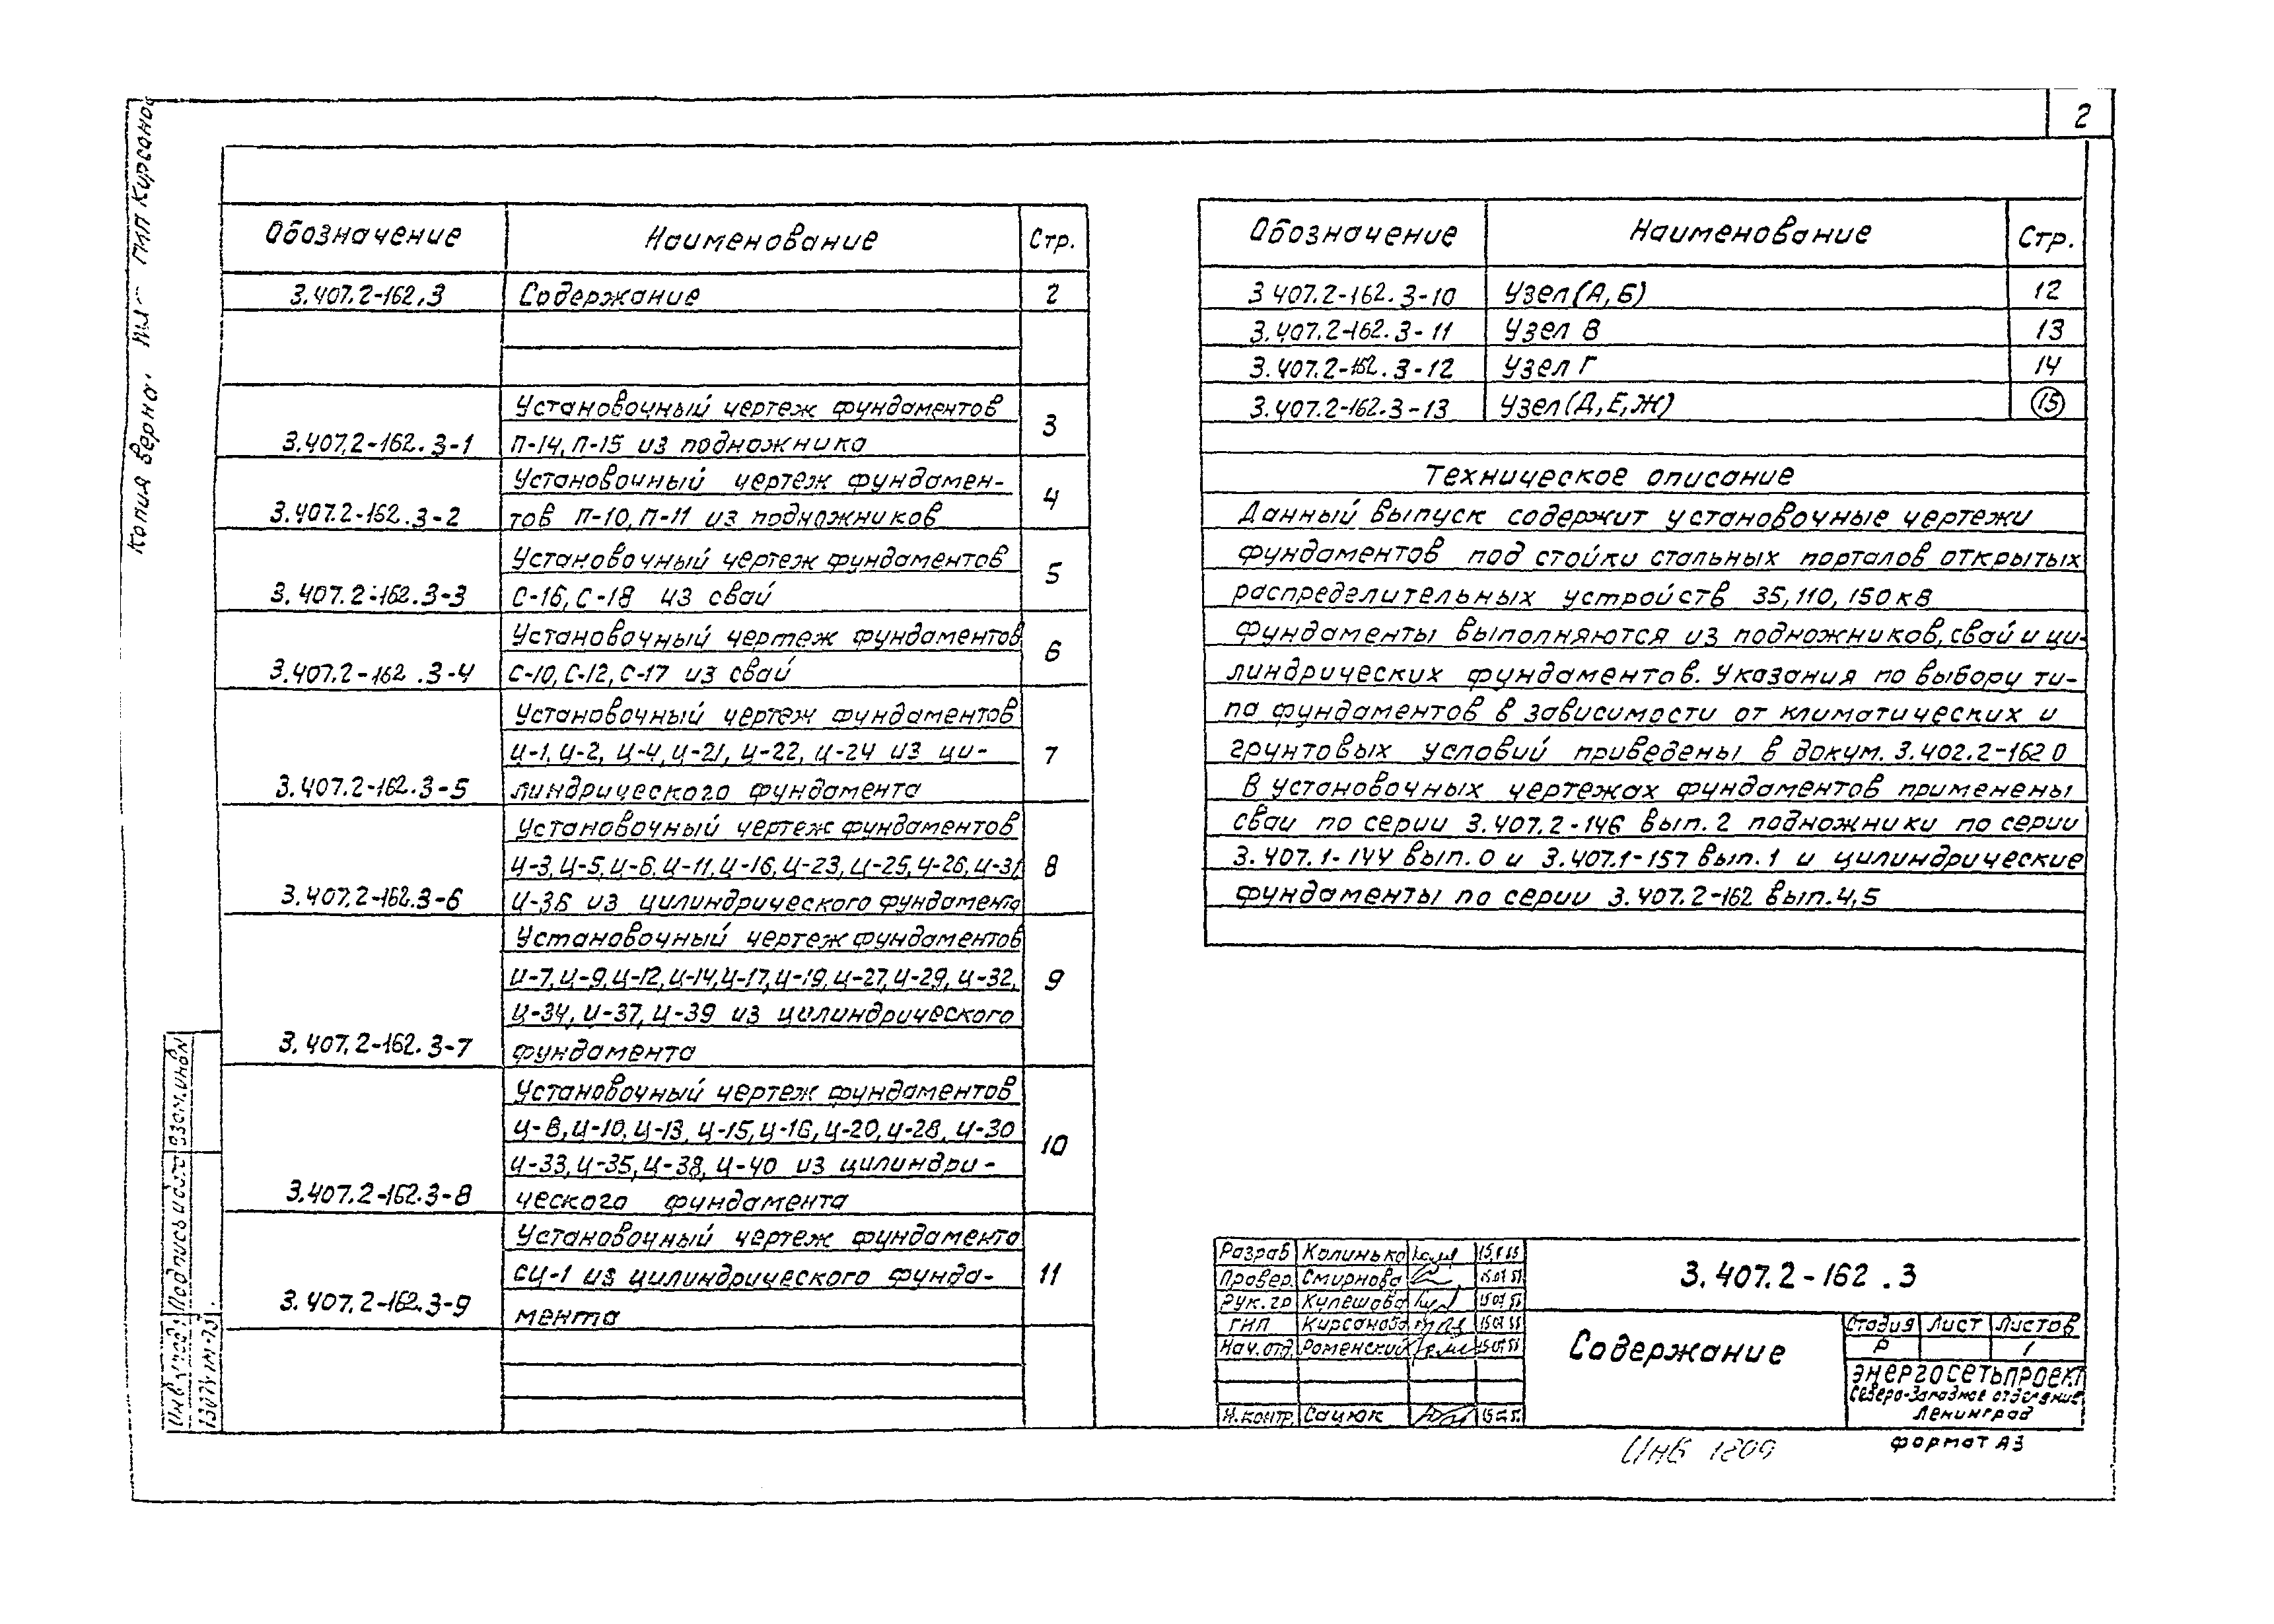 2
Копия верна. ГИП Кирсанов
Обозначение Наименование Стр.
3.407.2-162.3 Содержание 2
Установочный чертеж фундаментов
3.407.2-162.3-1 П-14, П-15 из подножника 3
Установочный чертеж фундамен-
3.407.2-162.3-2 тов П-10, П-11 из подножников 4
Установочный чертеж фундаментов
3.407.2-162.3-3 С-16, С-18 из свай 5
Установочный чертеж фундаментов
3.407.2-162.3-4 С-10, С-12, С-17 из свай 6
Установочный чертеж фундаментов
Ц-1, Ц-2, Ц-4, Ц-21, Ц-22, Ц-24 из ци- 7
3.407.2-162.3-5 линдрического фундамента
Установочный чертеж фундаментов
Ц-3, Ц-5, Ц-6, Ц-11, Ц-16, Ц-23, Ц-25, Ц-26, Ц-31, 8
3.407.2-162.3-6 Ц-36 из цилиндрического фундамента
Установочный чертеж фундаментов
Ц-7, Ц-9, Ц-12, Ц-14, Ц-17, Ц-19, Ц-27, Ц-29, Ц-32, 9
Ц-34, Ц-37, Ц-39 из цилиндрического
3.407.2-162.3-7 фундамента
Установочный чертеж фундаментов
Ц-8, Ц-10, Ц-13, Ц-15, Ц-16, Ц-20, Ц-28, Ц-30 10
Ц-33, Ц-35, Ц-38, Ц-40 из цилиндри-
3.407.2-162.3-8 ческого фундамента
Установочный чертеж фундамента
СЦ-1 из цилиндрического фунда- 11
3.407.2-162.3-9 мента
Обозначение Наименование Стр.
3 407.2-162.3-10 Узел (А, Б) 12
3.407.2-162.3-11 Узел В 13
3.407.2-162.3-12 Узел Г 14
3.407.2-162.3-13 Узел (Д, Е, Ж) 15
Техническое описание
Данный выпуск содержит установочные чертежи
фундаментов под стойки стальных порталов открытых
распределительных устройств 35, 110, 150 кВ
Фундаменты выполняются из подножников, свай и ци-
линдрических фундаментов. Указания по выбору ти-
па фундаментов в зависимости от климатических и
грунтовых условий приведены в докум. 3.402.2-162 0
В установочных чертежах фундаментов применены
сваи по серии 3.407.2-146 вып. 2 подножники по серии
3.407.1-144 вып. 0 и 3.407.1-157 вып. 1 и цилиндрические
фундаменты по серии 3.407.2-162 вып. 4,5
Разраб Калинько
Провер. Смирнова
Рук. гр Кулешова
ГИП Кирсанова
Нач. отд. Роменский
Н. контр. Сацюк
3.407.2-162.3
Содержание
Стадия Лист Листов
Р 1
Энергосетьпроект
Северо-Западное отделение
Ленинград
Инв 1209
формат А3
Взам. инв №
Подпись и дата
Инв № подл